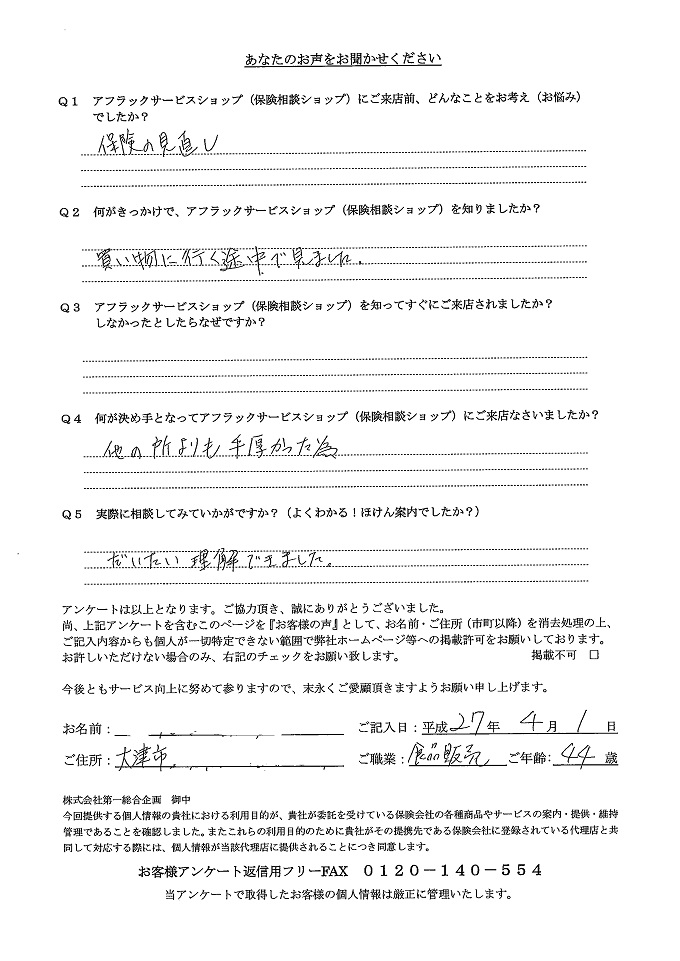 あなたのお声をお聞かせください
Q１ アフラックサービスショップ（保険相談ショップ）にご来店前、どんなことをお考え（お悩み）
でしたか？
保険の見直し
Q２ 何がきっかけで、アフラックサービスショップ（保険相談ショップ）を知りましたか？
買い物に行く途中で見ました。
Q３ アフラックサービスショップ（保険相談ショップ）を知ってすぐにご来店されましたか？
しなかったとしたらなぜですか？
Q４ 何が決め手となってアフラックサービスショップ（保険相談ショップ）にご来店なさいましたか？
他の所よりも手厚かった為
Q５ 実際に相談してみていかがですか？（よくわかる！ほけん案内でしたか？）
だいたい理解できました。
アンケートは以上となります。ご協力頂き、誠にありがとうございました。
尚、上記アンケートを含むこのページを『お客様の声』として、お名前・ご住所（市町以降）を消去処理の上、
ご記入内容からも個人が一切特定できない範囲で弊社ホームページ等への掲載許可をお願いしております。
お許しいただけない場合のみ、右記のチェックをお願い致します。 掲載不可 □
今後ともサービス向上に努めて参りますので、末永くご愛顧頂きますようお願い申し上げます。
お名前： ご記入日：平成27年 4月 1日
ご住所：大津市 ご職業：食品販売 ご年齢：44歳
株式会社第一総合企画 御中
今回提供する個人情報の貴社における利用目的が、貴社が委託を受けている保険会社の各種商品やサービスの案内・提供・維持
管理であることを確認しました。またこれらの利用目的のために貴社がその提携先である保険会社に登録されている代理店と共
同して対応する際には、個人情報が当該代理店に提供されることにつき同意します。
お客様アンケート返信用フリーFAX ０１２０－１４０－５５４
当アンケートで取得したお客様の個人情報は厳正に管理いたします。